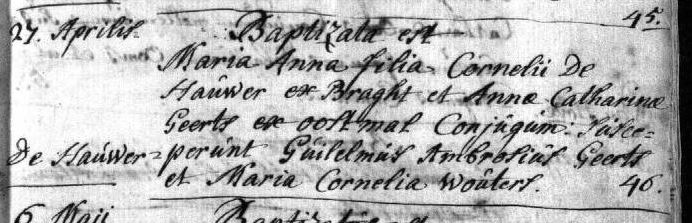 45.
27. Aprilis Baptizata est
Maria Anna filia Cornelii De
Haúwer ex Braght et Annæ Catharinæ
Geerts ex oostmal Conjúgúm: Súsce=
De Haúwer= perúnt Gúilelmús Ambrosiús Geerts
et Maria Cornelia Woúters. 46.
6 Maii Baptizat